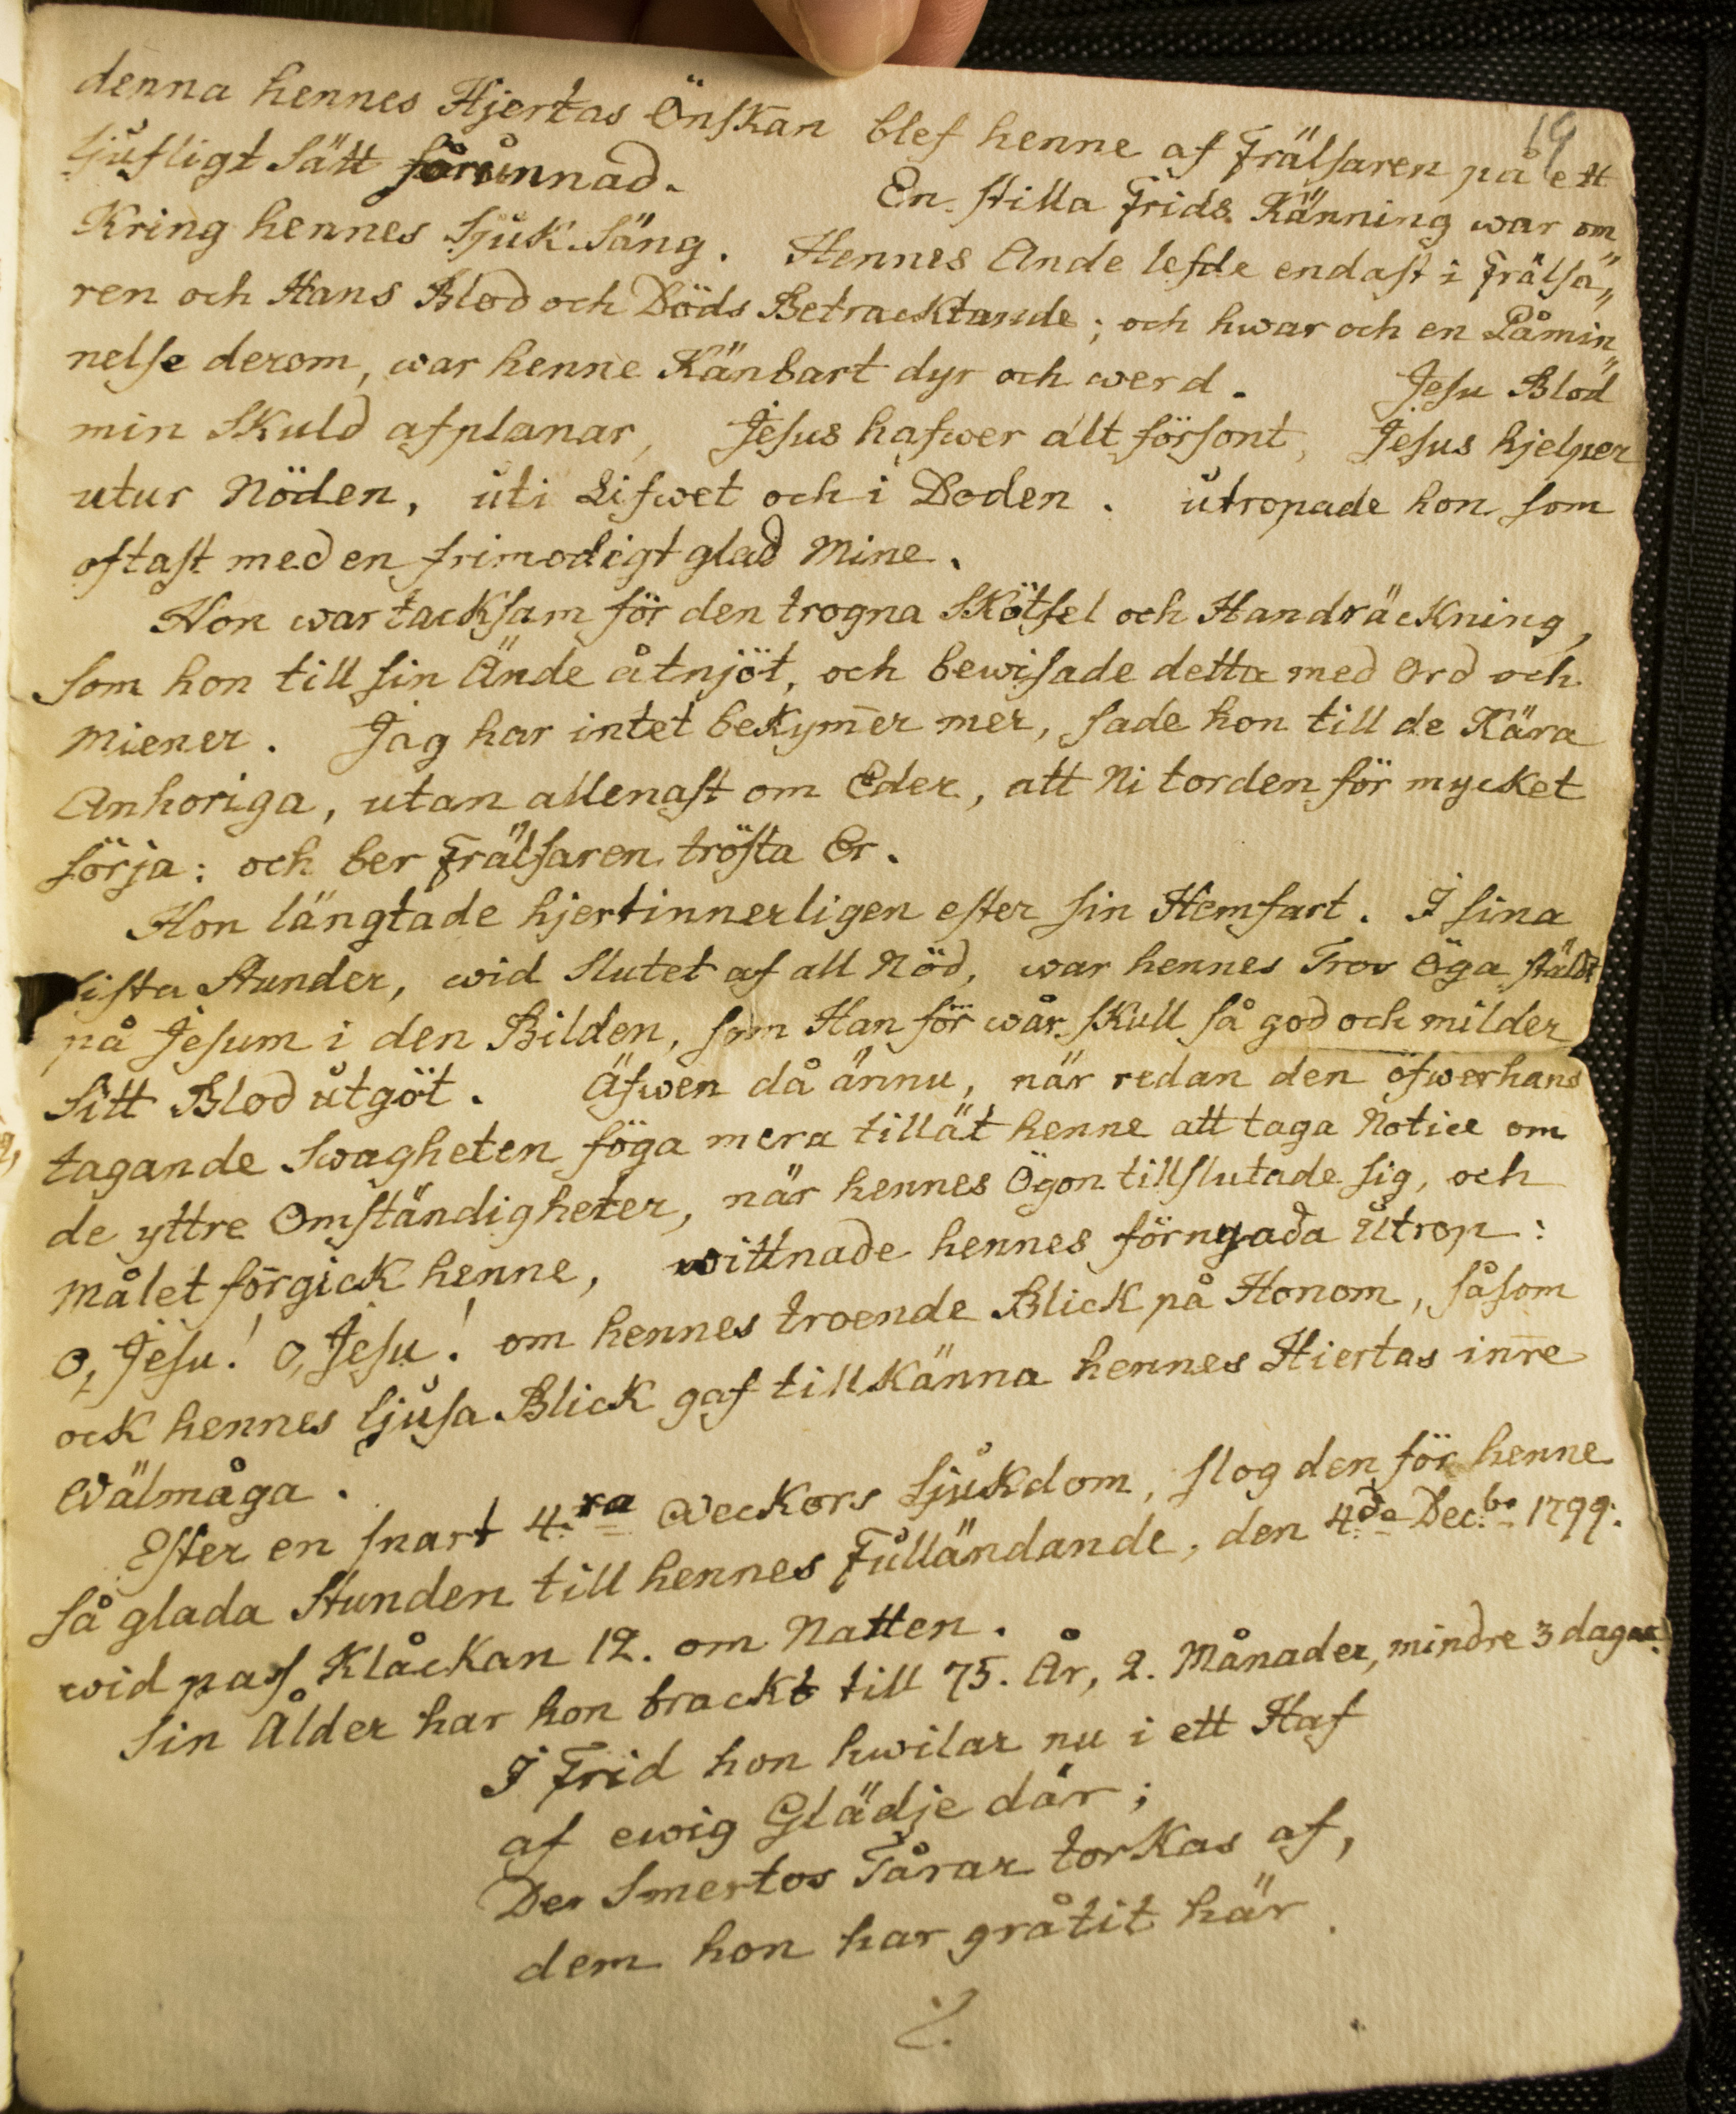 19
denna hennes Hjertas Önskan blef henne af Frälsaren på ett
ljufligt sätt förunnad. En stilla Frids Känning war om
Kring hennes Sjuk Säng. Hennes Ande lefde endast i Frälsa„
ren och Hans Blod och Döds Betracktande; och hwar och en Påmin„
nelse derom, war henne Känbart dyr och werd. Jesu Blod
min Skuld afplanar, Jesus hafwer alt försont, Jesus hjelper
utur Nöden, uti Lifwet och i Doden. utropade hon som
oftast med en frimodigt glad Mine.
Hon war tacksam för den trogna Skötsel och Handräckning,
som hon till sin Ände åtnjöt, och bewisade detta med Ord och
Miener. Jag har intet bekym̄er mer, sade hon till de Kära
Anhoriga, utan allenast om Eder, att Ni torden för mycket
sörja: och ber Frälsaren trösta Er.
Hon längtade hjertinnerligen efter sin Hemfart. I sina
sista Stunder, wid Slutet af all Nöd, war hennes Tros Öga stäldt
på Jesum i den Bilden, som Han för wår skull så god och milder
Sitt Blod utgöt. Äfwen då ännu, när redan den öfwerhand
tagande Swagheten föga mera tillät henne att taga Notice om
de yttre Omständigheter, när hennes Ögon tillslutade sig, och
Målet förgick henne, wittnade hennes förnyada Utrop:
O, Jesu! O, Jesu! om hennes troende Blick på Honom, såsom
ock hennes ljusa Blick gaf tillkänna hennes Hiertas inr̄e
Wälmåga.
Efter en snart 4.ra Weckors Sjukdom, slog den för henne
så glada Stunden till hennes Fulländande, den 4de Decbr 1799.
wid pass Klåckan 12. om Natten.
Sin Ålder har hon brackt till 75. År, 2. Månader, mindre 3 dagar.
I Frid hon hwilar nu i ett Haf
af ewig Glädje där;
Der Smertos Tårar torkas af,
dem hon har gråtit här.